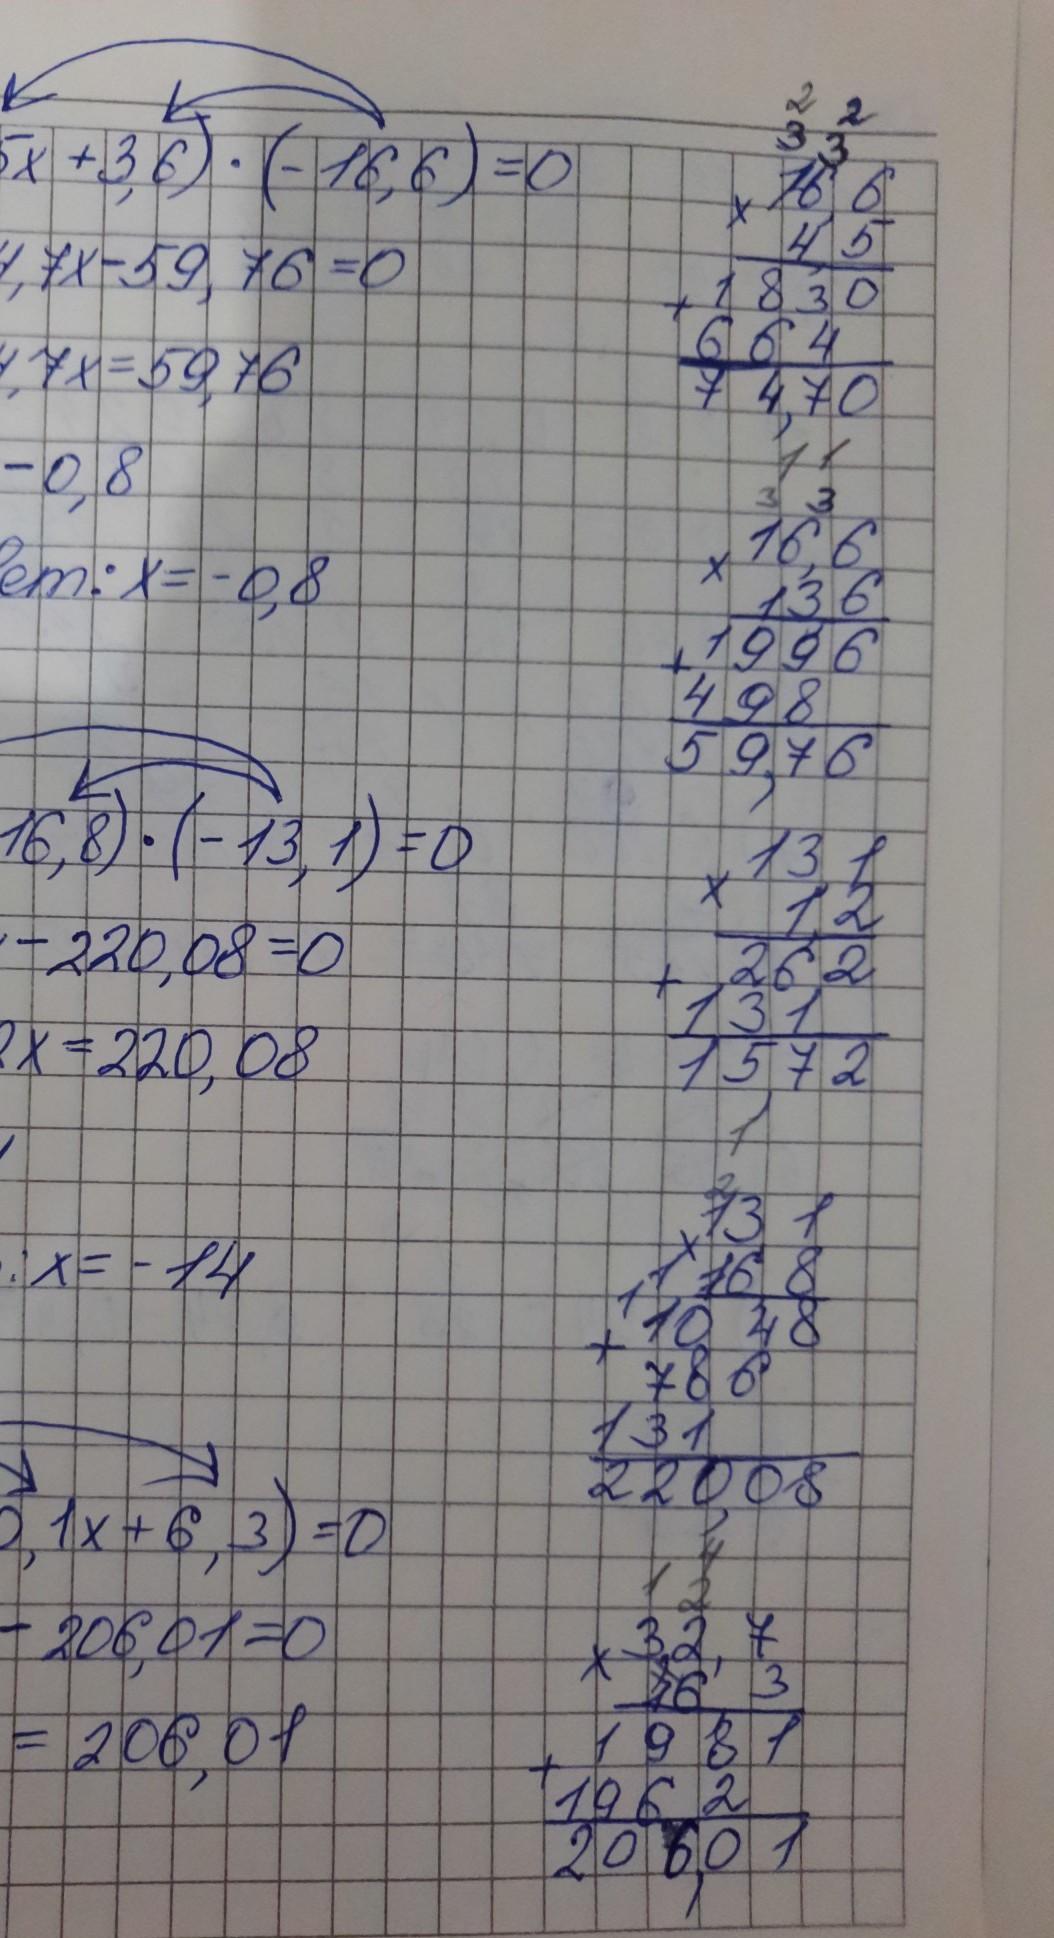 5x + 3,6) · (- 16,6) = 0
4,7x - 59,76 = 0
4,7x = 59,76
- 0,8
вет: x = - 0,8
16,8) · (- 13,1) = 0
- 220,08 = 0
2x = 220,08
: x = - 14
0,1x + 6,3) = 0
- 206,01 = 0
= 206,01
2 2
3 3
16 6
x 4,5
+ 1 8 3 0
6 6 4
7 4,7 0
1 1
3 3
16,6
x 136
+ 1 9 9 6
4 9 8
5 9,7 6
13 1
x 1,2
+ 262
131
1572
1
2
13 1
x 16 8
1 1
+ 10 48
786
131
220,08
1 2
32,7
x 6 3
+ 1 9 8 1
196 2
20 6,0 1